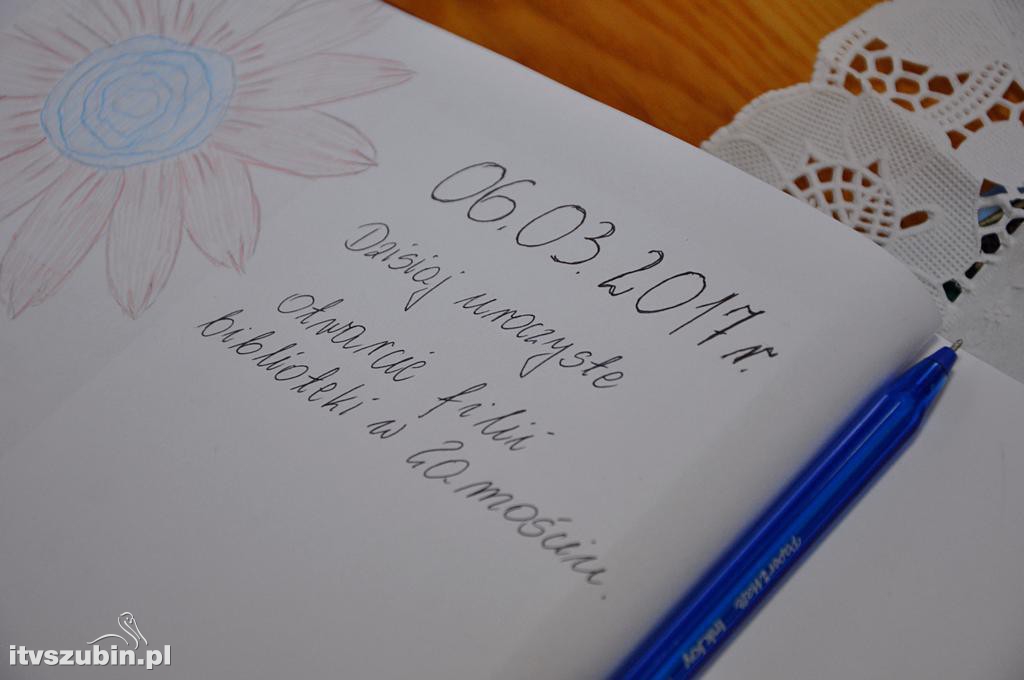 06.03.2017 r.
Dzisiaj uroczyste
otwarcie filii
biblioteki w Zamościu.
PaperMate InkJoy
itvszubin.pl